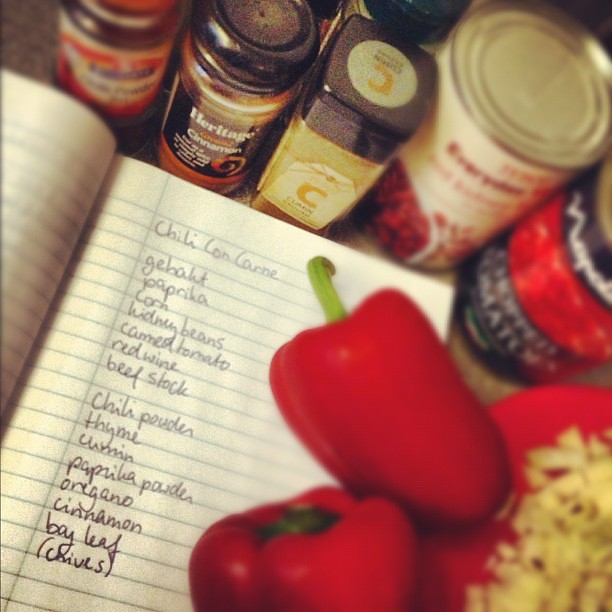 Heritage
Cinnamon
C
CUMIN
Everyday
Chili Con Carne
gehakt
paprika
corn
kidney beans
canned tomato
red wine
beef stock
Chili powder
thyme
cumin
paprika powder
oregano
cinnamon
bay leaf
(chives)